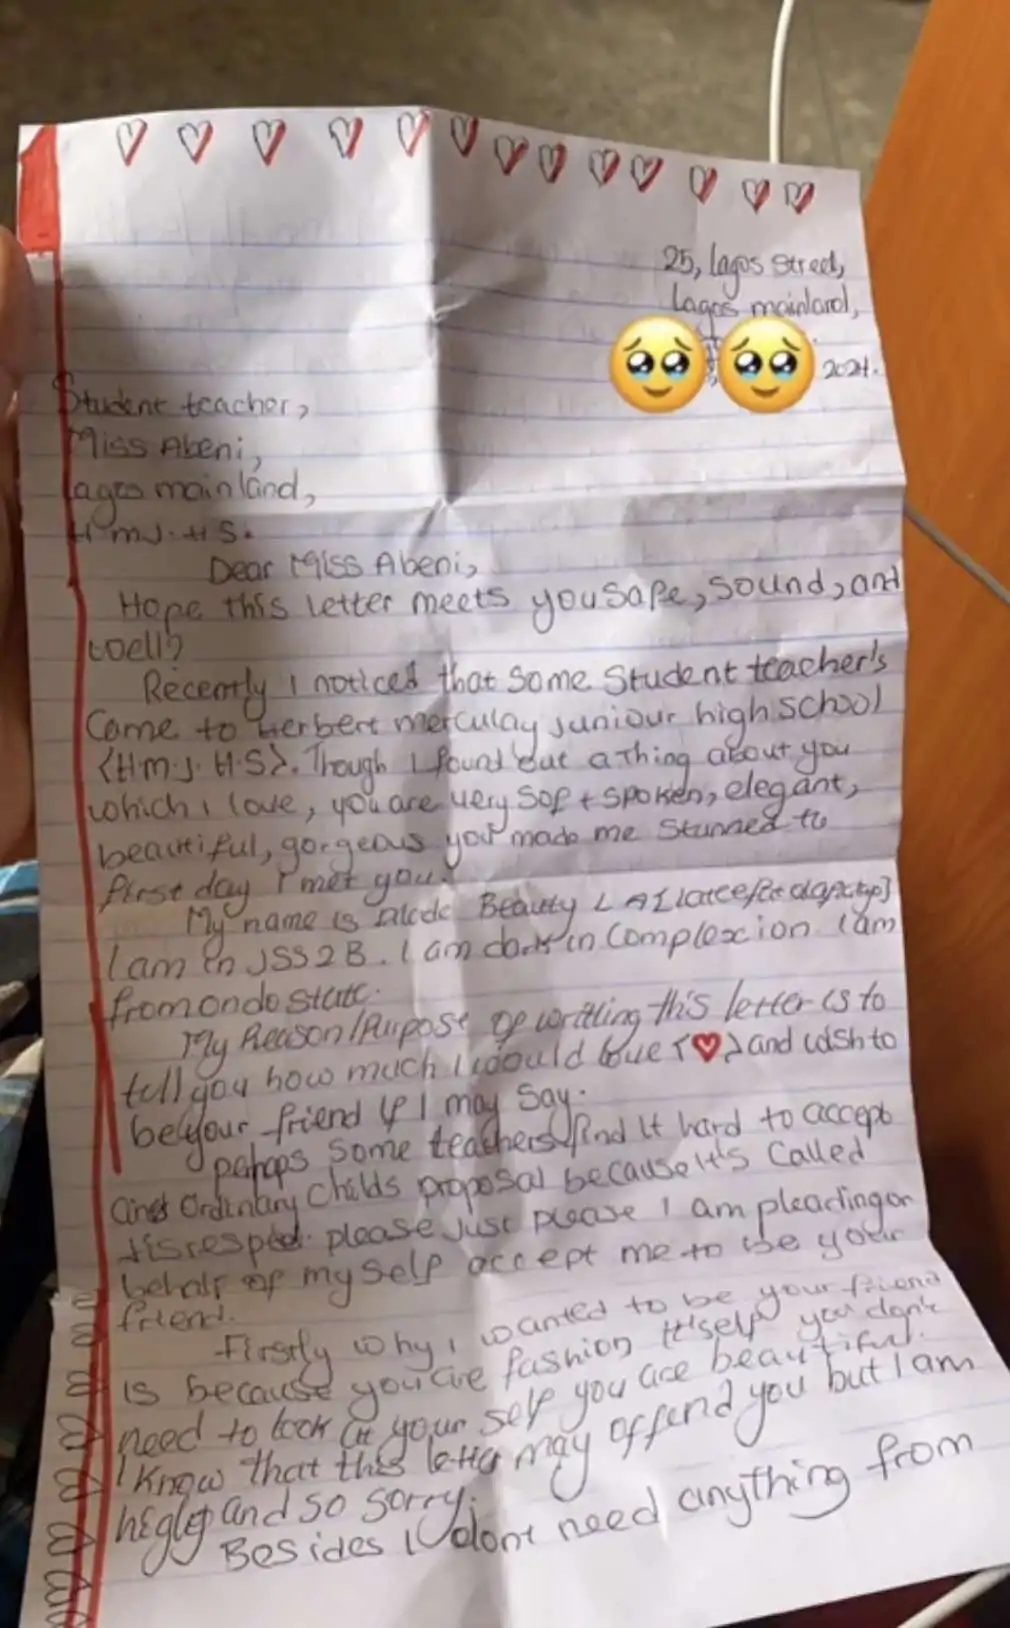 25, lagos street,
Lagos mainland,
2024.
Student teacher,
Miss Abeni,
Lagos mainland,
H.m.J.H.S.
Dear Miss Abeni,
Hope this letter meets you safe, sound, and
well?
Recently I noticed that some Student teacher's
Came to Herbert merculay juniour high school
{H.m.J.H.S}. Though I found out a thing about you
which I love, you are very soft spoken, elegant,
beautiful, gorgeous you made me stunned to
first day I met you.
My name is Beauty
I am in JSS2B. I am dark in Complexcion. I am
from ondo state.
My Reason/Purpose of writting this letter is to
tell you how much I would love {♥} and wish to
be your friend if I may say.
pehaps some teachers find it hard to accept
Ordinary childs proposal because it's called
disrespect. please just please I am pleading on
behalf of my self accept me to be your
friend.
Firstly why I wanted to be your friend
is because you are fashion itself you don't
need to look at your self you are beautiful.
I know that this letter may offend you but I am
and so sorry.
Besides I dont need anything from